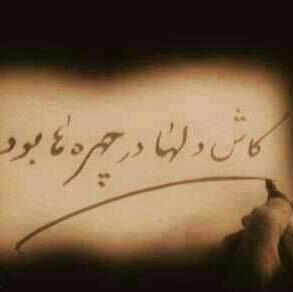 کاش دلها در چهره ها بود